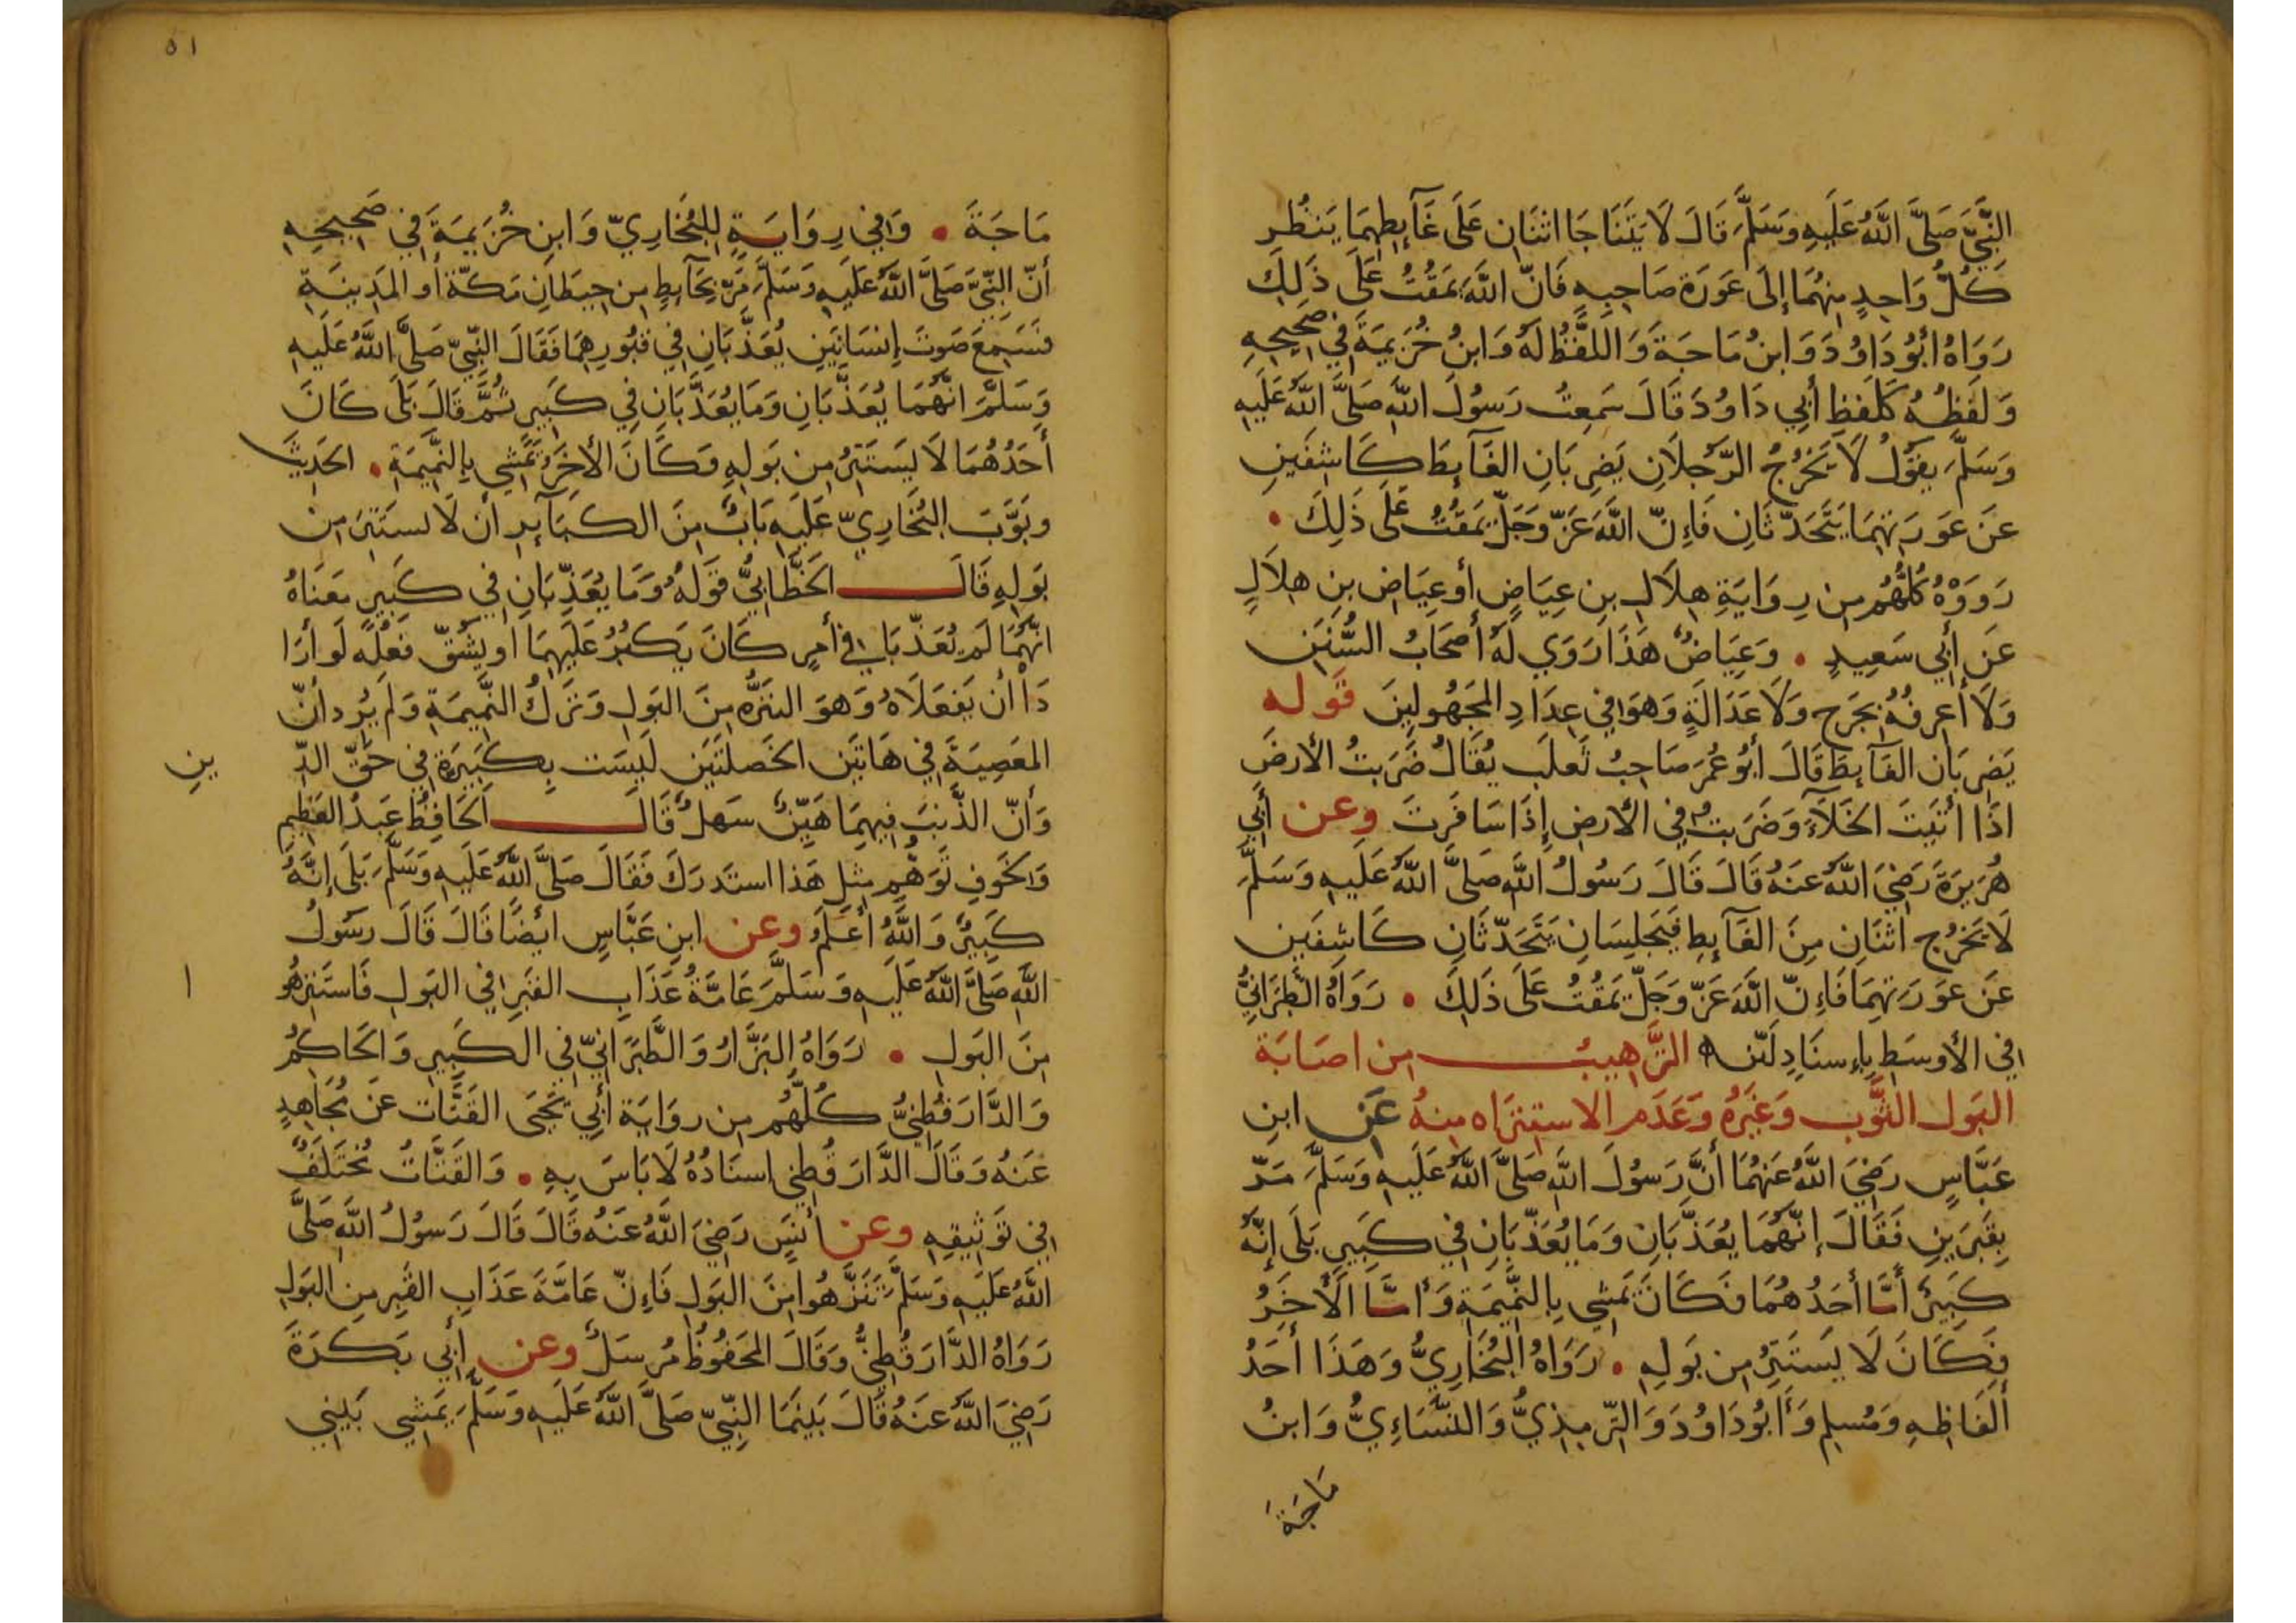 النَّبِيَّ صَلَّى اللَّهُ عَلَيهِ وَسَلَّمَ قَالَ لَا يَتَنَاجَا اثنَانِ عَلَى غَآئِطِهِمَا يَنظُرِ
كُلُّ وَاحِدٍ مِنهُمَا إِلَى عَورَة صَاحِبِهِ فَانّ اللَّهَ يَمقُتُ عَلَى ذَلِكَ
رَوَاهُ أَبُو دَاوُدَ وَابنُ مَاجَةَ وَاللفَظُ لَهُ وَابنُ خُزَيمَةَ فِي صَحِيحِهِ
وَلَفظُهُ كَلَفظِ أَبِي دَاوُدَ قَالَ سَمِعتُ رَسُولَ اللَّهِ صَلَّى اللَّهُ عَلَيهِ
وَسَلَّمَ يقُولُ لَا يَخرُجُ الرَّجُلَانِ يَضرِبَانِ الغَآئِطَ كَاشِفَينِ
عَن عَورَتِهِمَا يَتَحَدَّثَانِ فَإِنّ اللَّهَ عَزَّ وَجَلَّ يَمقُتُ عَلَى ذَلِكَ •
رَوَوْهُ كُلُّهُم مِن رِوَايَةِ هِلَالِ بنِ عِيَاضٍ أو عِيَاضِ بنِ هِلَالٍ
عَن أَبِي سَعِيدٍ • وَعِيَاضٌ هَذَا رَوَي لَهُ أَصحَابُ السُّنَنِ
وَلَا أَعرِفُهُ بِجَرحٍ وَلَا عَدَالَةٍ وَهوَ فِي عِدَادِ المَجهُولِينَ قَوله
يَضرِبَانِ الغَآئِطَ قَالَ أَبُو عُمَرَ صَاحِبُ ثَعلَب يُقَالُ ضَرَبتُ الأرضَ
اذَا أتَيتَ الخَلَآءَ وَضَرَبتُ فِي الأرضِ إِذَا سَافَرتَ وعن أبِي
هُرَيرَةَ رَضِيَ اللَّهُ عَنهُ قَالَ قَالَ رَسُولُ اللَّهِ صَلَّى اللَّهُ عَلَيهِ وَسَلَّمَ
لَا يَخرُج اثنَانِ مِنَ الغَآئِطِ فَيَجلِسَانِ يَتَحَدّثَانِ كَاشِفَينِ
عَن عَورَتِهِمَا فَإِنّ اللَّهَ عَزّ وَجَلّ يَمقُتُ عَلَى ذَلِكَ • رَوَاهُ الطبَرَانِيُّ
فِي الأوسَطِ بِإِسنَادٍ لَيّن التَّرهِيبُ مِن اصَابَة
البَول الثَّوب وَغَيرُهُ وَعَدَم الاستنزَاه مِنهُ عَن ابنِ
عَبَّاسٍ رَضِيَ اللَّهُ عَنهُمَا أَنَّ رَسُولَ اللَّهِ صَلَّى اللَّهُ عَلَيهِ وَسَلَّمَ مَرّ
بِقَبرَينِ فَقَالَ إِنَّهُمَا يُعَذَّبَانِ وَمَا يُعَذَّبَانِ فِي كَبِيرٍ بَلَى إِنَّهُ
كَبِيرٌ أَمَّا أَحَدُهُمَا فَكَانَ يَمشِي بِالنَّمِيمَةِ وَأَمَّا الَأَخَرُ
فَكَانَ لَا يَستَتِرُ مِن بَولِهِ • رَوَاهُ البُخَارِيُّ وَهَذَا أَحَدُ
أَلفَاظِهِ وَمُسلِم وَأَبُو دَاوُدَ وَالتّرمِذِيُّ وَالنَّسَاءِيُّ وَابنُ
مَاجَةَ
٥١
مَاجَةَ • وَفِي رِوَايَةٍ لِلبُخَارِيّ وَابنِ خُزَيمَةَ فِي صَحِيحِهِ
أَنّ النَّبِيَّ صَلَّى اللَّهُ عَلَيهِ وَسَلَّمَ مَرّ بِحَآئِطٍ مِن حِيطَانِ مَكّةَ أَو المَدِينَةِ
فَسَمِعَ صَوتَ إِنسَانَينِ يُعَذَّبَانِ فِي قُبُورِهِمَا فَقَالَ النَّبِيّ صَلَّى اللَّهُ عَلَيهِ
وَسَلَّمَ انَّهُمَا يُعَذَّبَانِ وَمَا يُعَذَّبَانِ فِي كَبِيرٍ ثُمَّ قَالَ بَلَى كَانَ
أَحَدُهُمَا لَا يَستَتِرُ مِن بَولِهِ وَكَانَ الأخَرُ يَمشِي بِالنَّمِيمَةِ • الحَدِيثَ
وبَوَّبَ البُخَارِيّ عَلَيهِ بَابٌ مِنَ الكبَآئِرِ أَن لَا يستَتِرَ مِن
بَولِهِ قَالَ الخَطَّابِيُّ قَولَهُ وَمَا يُعَذّبَانِ فِي كَبِيرٍ مَعنَاهُ
انَّهُمَا لَم يُعَذّبَا فِي أَمرٍ كَانَ يَكبُرُ عَلَيهِمَا او يشُقّ فِعلُه لَو أَرَا
دَا أَن يَفعَلَاهُ وَهوَ التنَزُّه مِنَ البَولِ وَتَركُ النَّمِيمَةِ وَلَم يُرِد أَنّ
المَعصِيَةَ فِي هَاتَين الخَصلتَينِ لَيسَت بِكَبِيرَةٍ فِي حَقّ الدّ
ينِ
وَأَنّ الذَّنبَ فِيهِمَا هَيّنٌ سَهلٌ قَالَ الحَافِظُ عَبدُ العَظِيمِ
وَلخَوفِ تَوَهُّمِ مِثلِ هَذا استَدرَكَ فَقَالَ صَلَّى اللَّهُ عَلَيهِ وَسَلَّمَ بَلَى إِنَّهُ
كَبِيرٌ وَاللَّهُ أَعلَمُ وعن ابنِ عَبَّاسٍ ايضًا قَالَ قَالَ رَسُولُ
اللَّهِ صَلَّى اللَّهُ عَلَيهِ وَسَلَّمَ عَامَّةُ عَذَابِ القَبرِ فِي البَولِ فَاستَنزِهُو
ا
مِنَ البَولِ • رَوَاهُ البَزَّارُ وَالطَّبَرَانِيّ فِي الكَبِيرِ وَالحَاكِمُ
وَالدَّارَقُطنِيُّ كُلُّهُم مِن روَايَة أَبِي يَحيَى القَتَّات عَن مُجَاهِدٍ
عَنهُ وَقَالَ الدَّارَقُطنِي إسنَادُهُ لَا بَاسَ بِهِ • وَالقَتَّاتُ مُختَلَفٌ
فِي تَوثِيقِهِ وعن أَنسٍ رَضِيَ اللَّهُ عَنهُ قَالَ قَالَ رَسُولُ اللَّهِ صَلَّى
اللَّهُ عَلَيهِ وَسَلَّمَ تَنَزَّهُوا مِنَ البَولِ فَإِنّ عَامَّةَ عَذَابِ القَبرِ مِنَ البَولِ
رَوَاهُ الدَّارَقُطنِيُّ وَقَالَ المَحفُوظُ مُرسَلٌ وعن أَبِي بَكرَةَ
رَضِيَ اللَّهُ عَنهُ قَالَ بَينَمَا النَّبِيّ صَلَّى اللَّهُ عَلَيهِ وَسَلَّمَ يَمشِي بَينِي